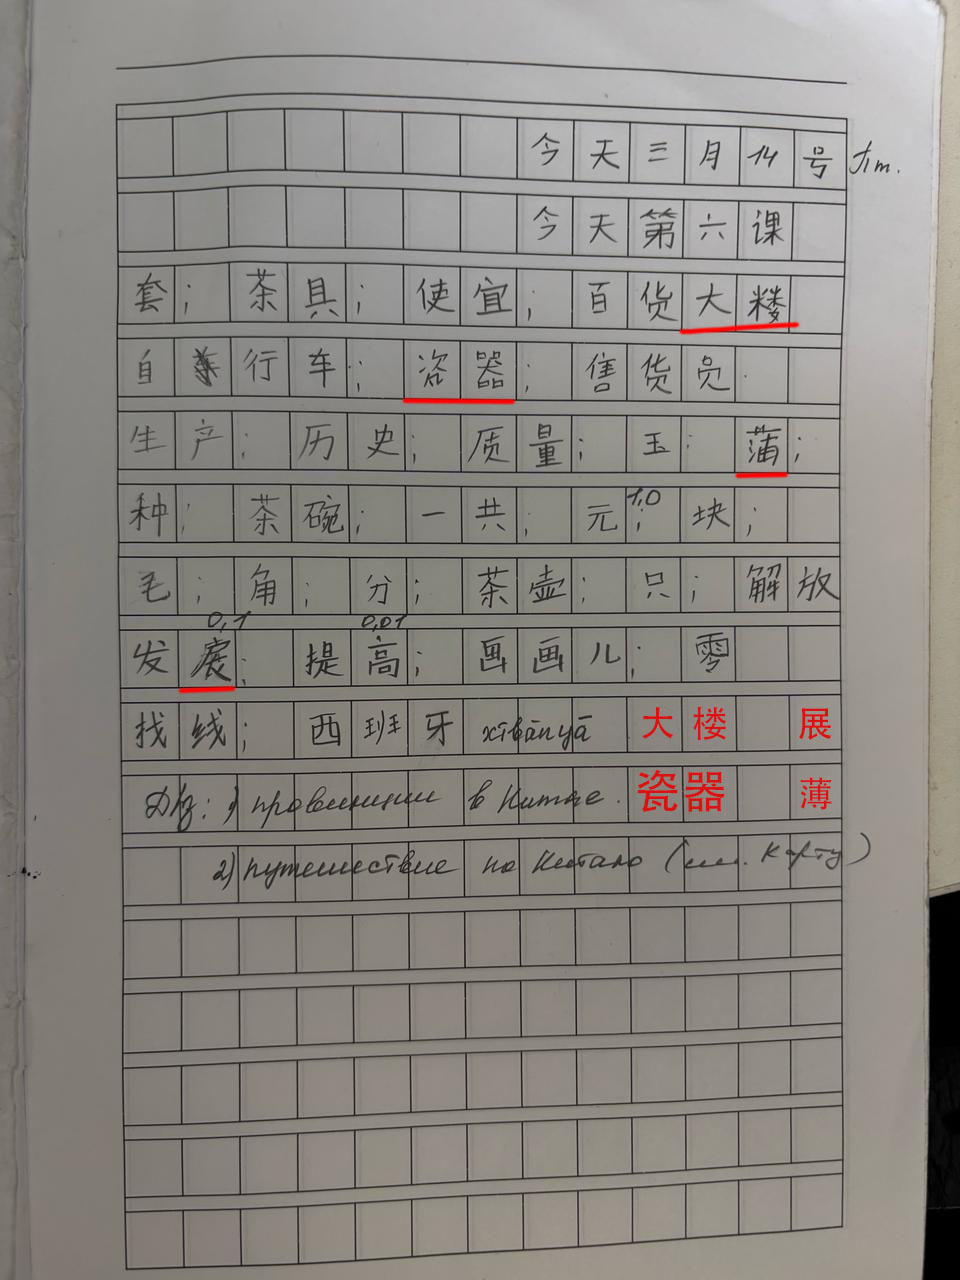 今天三月14号 Пт.
今天第六课
套; 茶具; 使宜; 百货大楼
自行车; 瓷器; 售货员
生产; 历史; 质量; 玉; 蒲;
种; 茶碗; 一共; 元; 1,0 块;
毛; 角; 分; 茶壶; 只; 解放
0,1 0,01
发展; 提高; 画画儿; 零
找线; 西班牙 xībānyá 大楼 展
Д/з: 1) провинции в Китае. 瓷器 薄
2) путешествие по Китаю (см. карту)